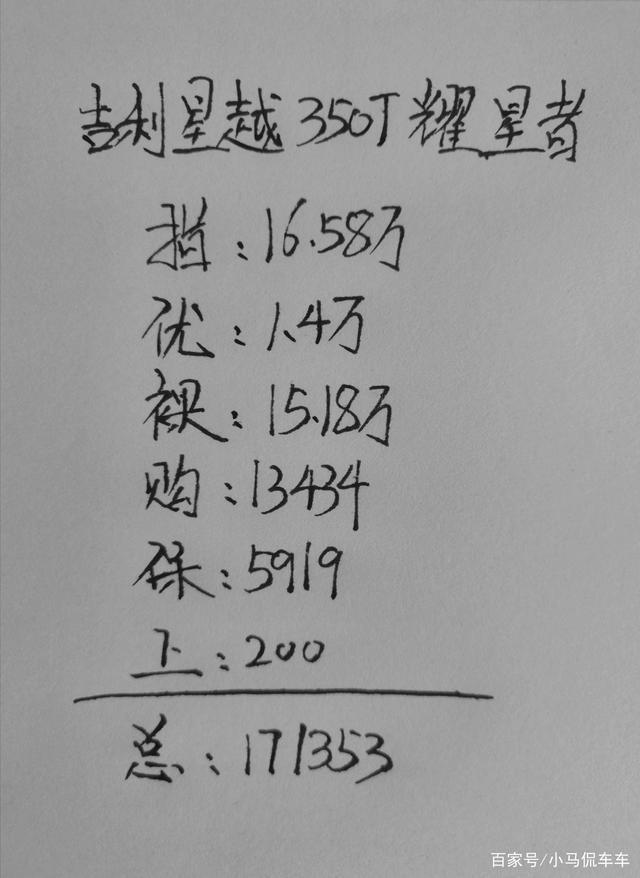 吉利星越350T耀星者
指:16.58万
优:1.4万
裸:15.18万
购:13434
保:5919
上:200
总:171353
百家号/小马侃车车